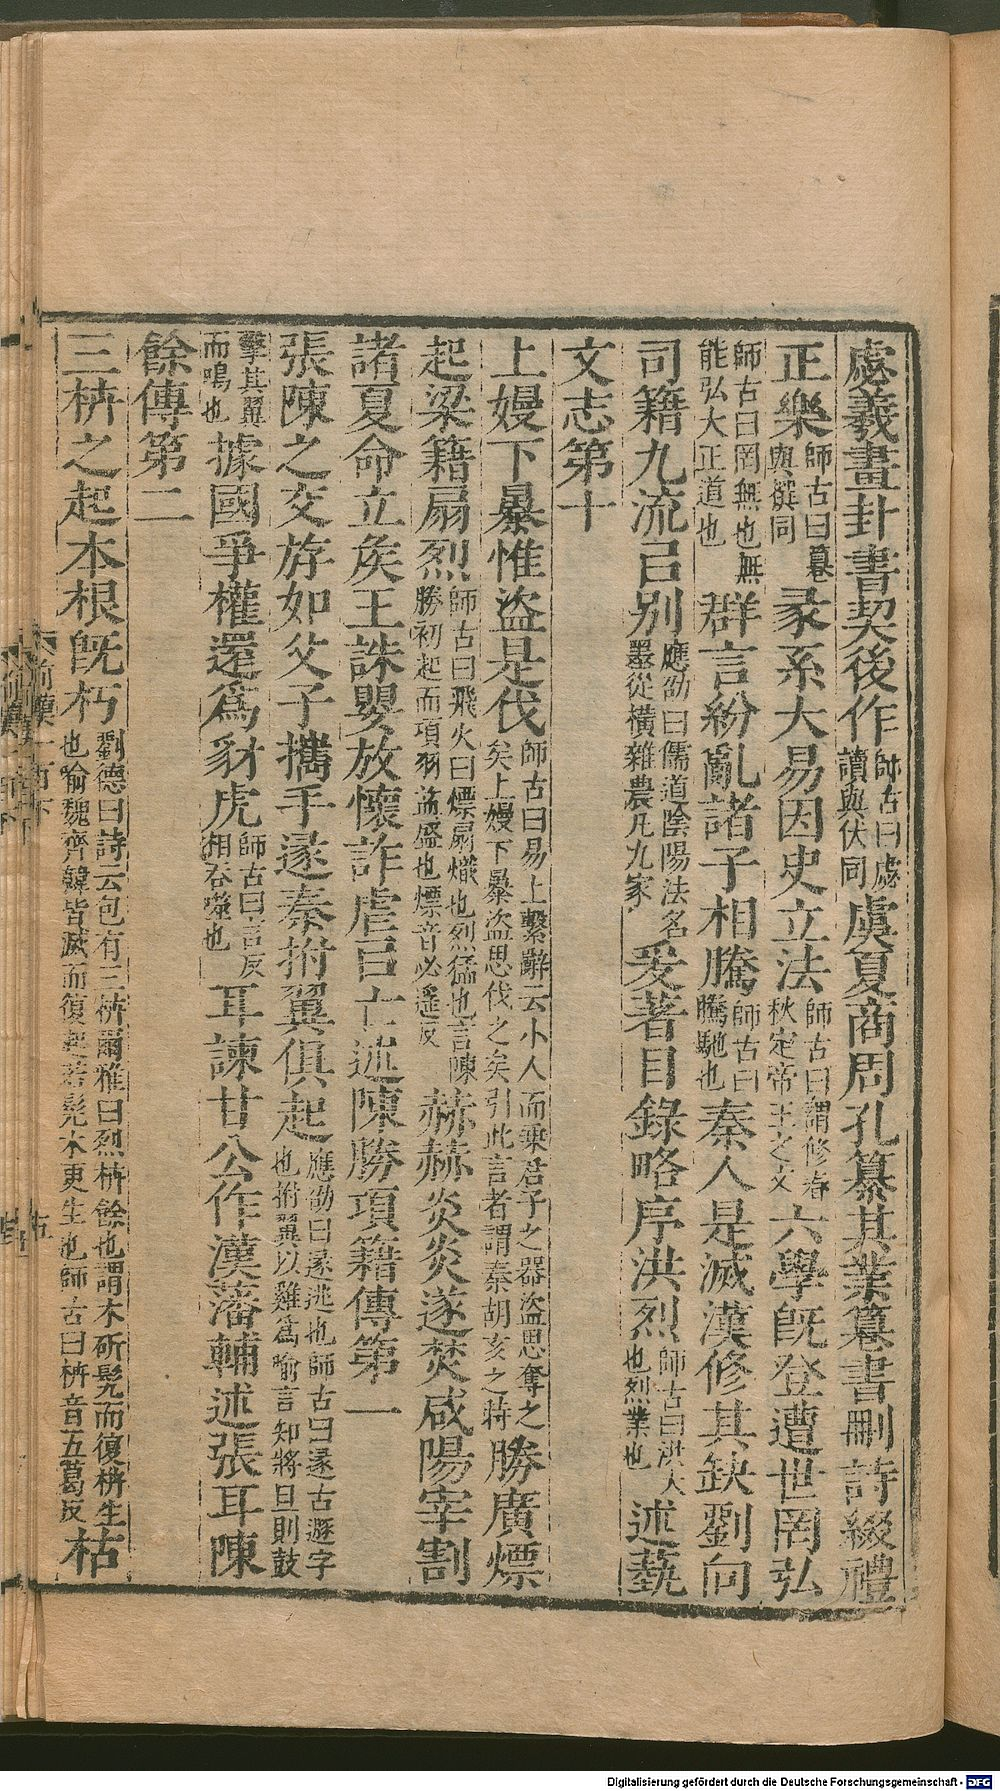 虙羲畫卦書契後作師古曰虙讀與伏同虞夏商周孔纂其業篹書刪詩綴禮
正樂師古曰篹與撰同彖系大易因史立法師古曰謂修春秋定帝王之文六學旣登遭世罔弘
師古曰罔無也無能弘大正道也群言紛亂諸子相騰師古曰騰馳也秦人是滅漢修其缺劉向
司籍九流㠯別應劭曰儒道陰陽法名墨從橫雜農凡九家爰著目錄略序洪烈師古曰洪大也烈業也述藝
文志第十
上嫚下暴惟盜是伐師古曰易上繫辭云小人而乘君子之器盜思奪之矣上嫚下暴盜思伐之矣引此言者謂秦胡亥之時勝廣熛
起梁籍扇烈師古曰飛火曰熛扇熾也烈猛也言陳勝初起而項羽益盛也熛音必遥反赫赫炎炎遂焚咸陽宰割
諸夏命立矦王誅嬰放懷詐虐㠯亡述陳勝項籍傳第一
張陳之交斿如父子攜手遂秦拊翼俱起應劭曰遂逃也師古曰遂古遯字也拊翼以雞爲喻言知將旦則鼓
擊其翼而鳴也據國爭權還爲豺虎師古曰言反相吞噬也耳諫甘公作漢藩輔述張耳陳
餘傳第二
三枿之起本根旣朽劉德曰詩云包有三枿爾雅曰烈枿餘也謂木斫髡而復枿生也喻魏齊韓皆滅而復起若髡木更生也師古曰枿音五葛反枯
Digitalisierung gefördert durch die Deutsche Forschungsgemeinschaft - DFG